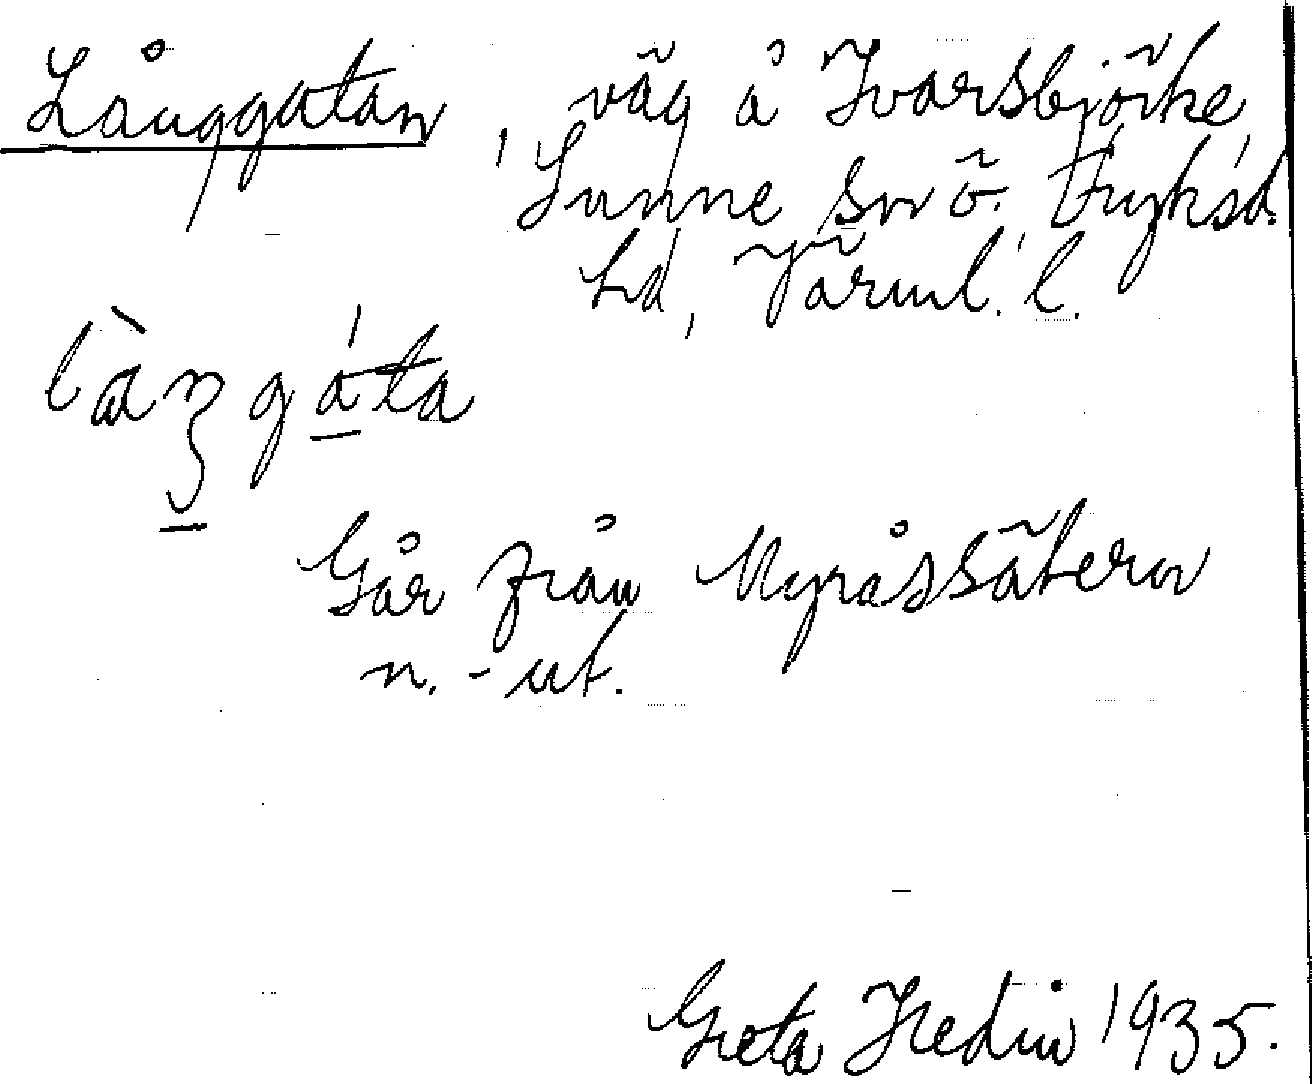 Långgatan, väg å Ivarsbjörke,
Sunne sn ö. Fryksd.
hd, Värml. l.
Går från Myråssätern
n. - ut.
Greta Hedin 1935.